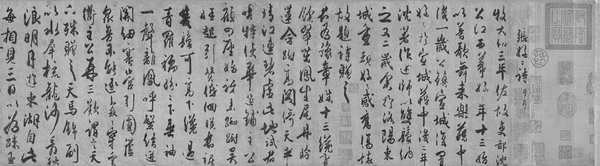 張好好詩并序
牧大和三年佐故吏部沈
公江西幕好好年十三始
以善歌舞來樂籍中
後一歲公鎮宣城復置好
好於宣城籍中後二年
沈著作述師以雙鬟納
之又二歲余於洛陽東
城重覩好好感舊傷懷
故題詩贈之
君為豫章姝十三纔有
餘翠茁鳳生尾丹臉
蓮含跗高閣倚天半
章江連碧虛此地試君
唱特使華筵鋪主公
顧四座始訝來踟躕吳
娃起引贊低佪映長裾
雙鬟可高下纔過
青羅襦盼盼下垂袖
一聲離鳳呼繁弦迸
關紐塞管裂圓蘆
衆音不能逐裊裊穿雲
衢主公再三歎謂言天
下殊贈之天馬錦副
以水犀梳龍沙看秋
浪明月遊東湖自此
每相見三日以為疎玉